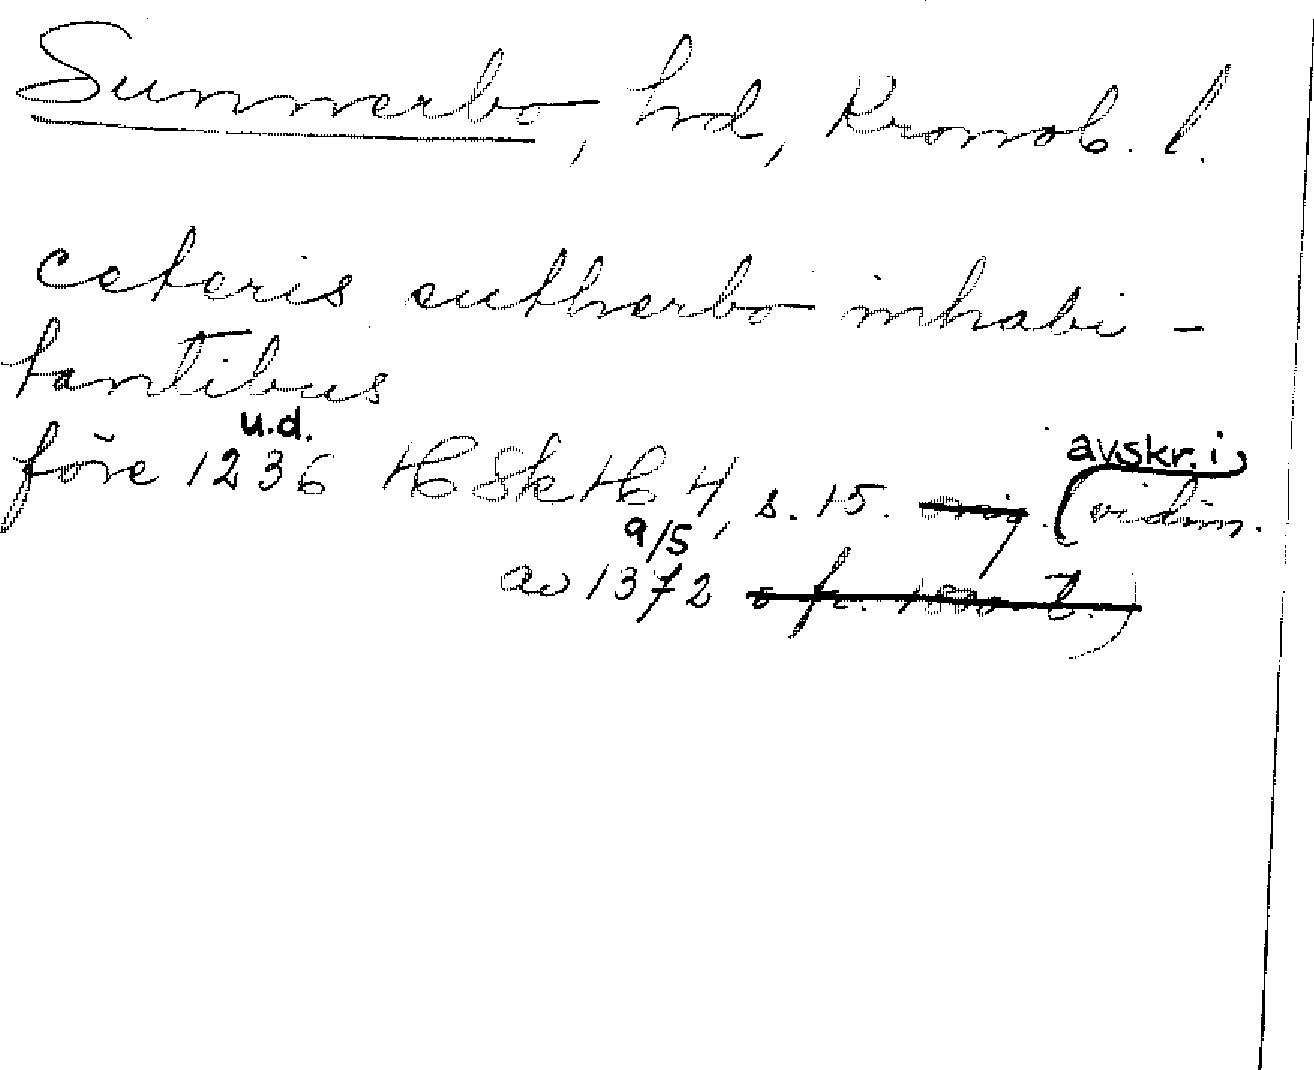 Sunnerbo, hd, Kronob. l.
ceteris sutherbo inhabi-
tantibus
u.d.
före 1236 HSkH 4, s. 15. orig. (avskr. i vidim.
9/5
av 1372 i fr. 1300-t.)